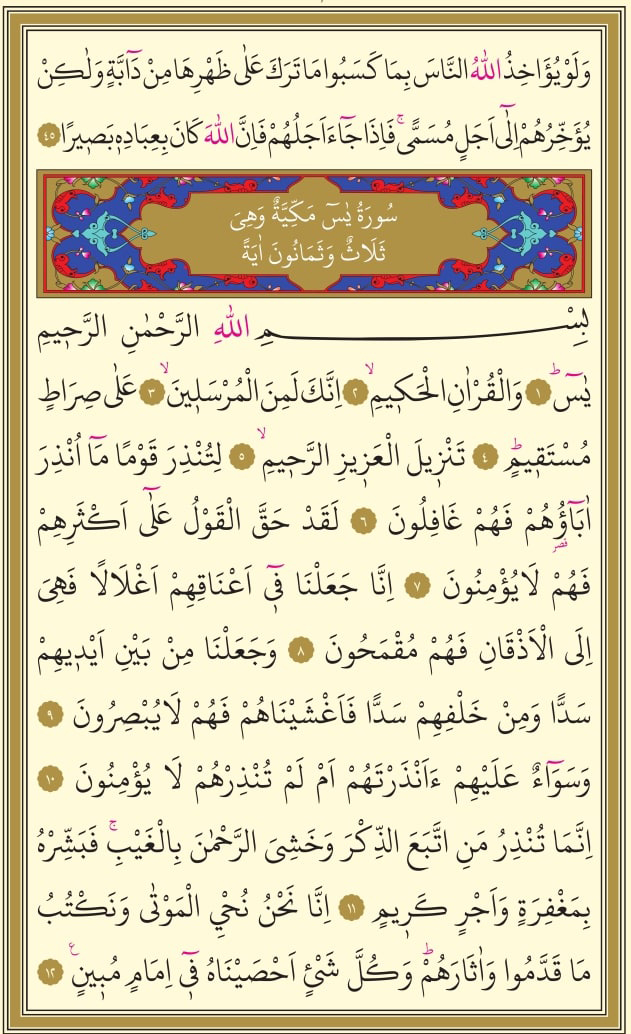 وَلَوْ يُؤَاخِذُ اللّٰهُ النَّاسَ بِمَا كَسَبُوا مَا تَرَكَ عَلٰى ظَهْرِهَا مِنْ دَٓابَّةٍ وَلٰكِنْ
يُؤَخِّرُهُمْ اِلٰٓى اَجَلٍ مُسَمًّىۚ فَاِذَا جَٓاءَ اَجَلُهُمْ فَاِنَّ اللّٰهَ كَانَ بِعِبَادِه۪ بَص۪يرًا ٤٥
سُورَةُ يٰسٓ مَكِّيَّةٌ وَهِىَ
ثَلَاثٌ وَثَمَانُونَ اٰيَةً
بِسْمِ اللّٰهِ الرَّحْمٰنِ الرَّح۪يمِ
يٰسٓۜ ١ وَالْقُرْاٰنِ الْحَك۪يمِۙ ٢ اِنَّكَ لَمِنَ الْمُرْسَل۪ينَۙ ٣ عَلٰى صِرَاطٍ
مُسْتَق۪يمٍۜ ٤ تَنْز۪يلَ الْعَز۪يزِ الرَّح۪يمِۙ ٥ لِتُنْذِرَ قَوْمًا مَٓا اُنْذِرَ
اٰبَٓاؤُ۬هُمْ فَهُمْ غَافِلُونَ ٦ لَقَدْ حَقَّ الْقَوْلُ عَلٰٓى اَكْثَرِهِمْ
قصر
فَهُمْ لَا يُؤْمِنُونَ ٧ اِنَّا جَعَلْنَا ف۪ٓي اَعْنَاقِهِمْ اَغْلَالًا فَهِىَ
اِلَى الْاَذْقَانِ فَهُمْ مُقْمَحُونَ ٨ وَجَعَلْنَا مِنْ بَيْنِ اَيْد۪يهِمْ
سَدًّا وَمِنْ خَلْفِهِمْ سَدًّا فَاَغْشَيْنَاهُمْ فَهُمْ لَا يُبْصِرُونَ ٩
وَسَوَٓاءٌ عَلَيْهِمْ ءَاَنْذَرْتَهُمْ اَمْ لَمْ تُنْذِرْهُمْ لَا يُؤْمِنُونَ ١٠
اِنَّمَا تُنْذِرُ مَنِ اتَّبَعَ الذِّكْرَ وَخَشِىَ الرَّحْمٰنَ بِالْغَيْبِۚ فَبَشِّرْهُ
بِمَغْفِرَةٍ وَاَجْرٍ كَر۪يمٍ ١١ اِنَّا نَحْنُ نُحْيِ الْمَوْتٰى وَنَكْتُبُ
مَا قَدَّمُوا وَاٰثَارَهُمْۜ وَكُلَّ شَيْئٍ اَحْصَيْنَاهُ ف۪ٓي اِمَامٍ مُب۪ينٍ۟ ع ١٢